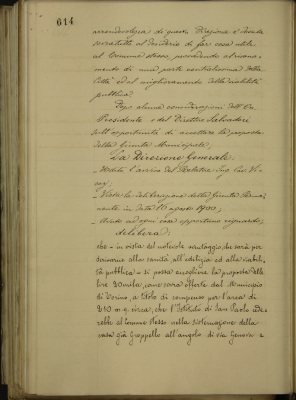 614
arrendevolezza di questa Direzione è dovuta
soratutto al desiderio di far cosa utile
al Comune stesso, provvedendo al risana-
mento di una parte centralissima della
Città ed al miglioramento della viabilità
pubblica.
Dopo alcune considerazioni dell'On.
Presidente e del Direttore Salvadori
sull'opportunità di accettare la proposta
della Giunta Municipale;
La Direzione Generale
- Udito l'avviso del Relatore Ing. Cav.
- Vista la deliberazione della Giunta Muni-
in data 18 agosto 1900;
- Avuto ad ogni cosa opportuno riguardo;
delibera:
che - in vista del notevole vantaggio, che sarà per
derivarne alla sanità, all'edilizia ed alla viabili-
tà pubblica - si possa accogliere la proposta delle
lire 30 mila, come sovra offerte dal Municipio
di Torino, a titolo di compenso per l'area di
210 m.q. circa, che l'Istituto di San Paolo cede-
rebbe al Comune stesso nella sistemazione della
casa già Groppello all'angolo di via Genova e